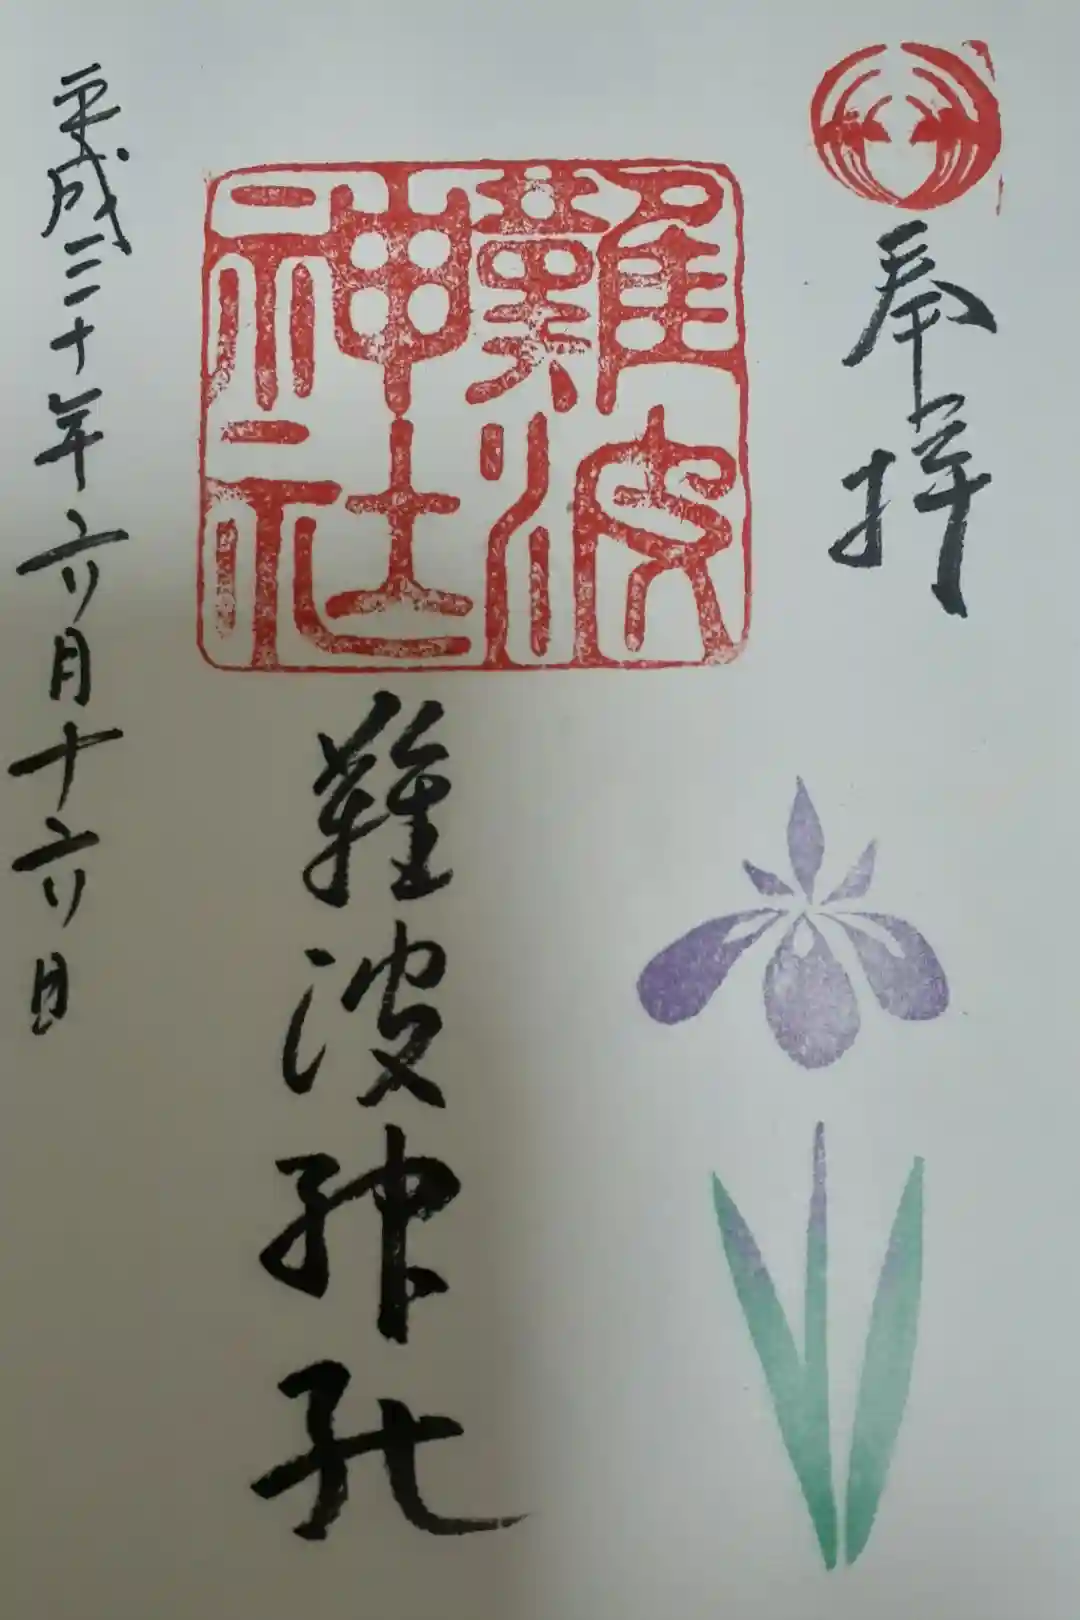 奉拝
難波
神社
難波神社
平成三十年六月十六日